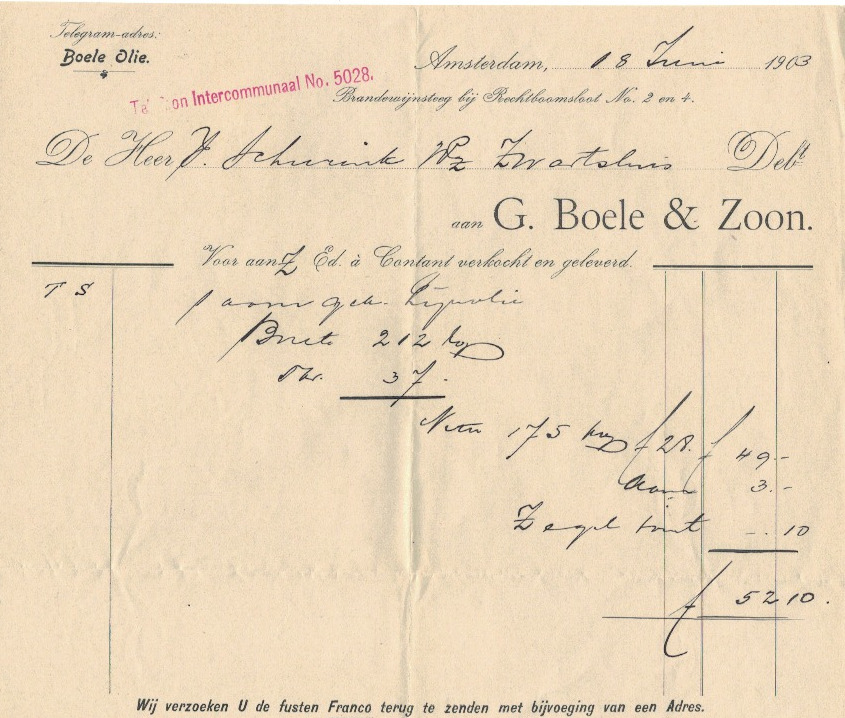 Telegram-adres:
Boele Olie.
Amsterdam, 18 Juni 1903
Intercommunaal No. 5028.
Brandewijnsteeg bij Rechtboomsloot No. 2 en 4.
De Heer J. Schurink Wz Zwartsluis Debt
aan G. Boele & Zoon.
Voor aan Z Ed. à Contant verkocht en geleverd.
T S
1 aam gek. Lijnolie
Bruto 212 kg
Thr. 37.
Netto 175 kg f 28. f 49.-
Aam 3.-
Zegel -.10
f 52 10.
Wij verzoeken U de fusten Franco terug te zenden met bijvoeging van een Adres.